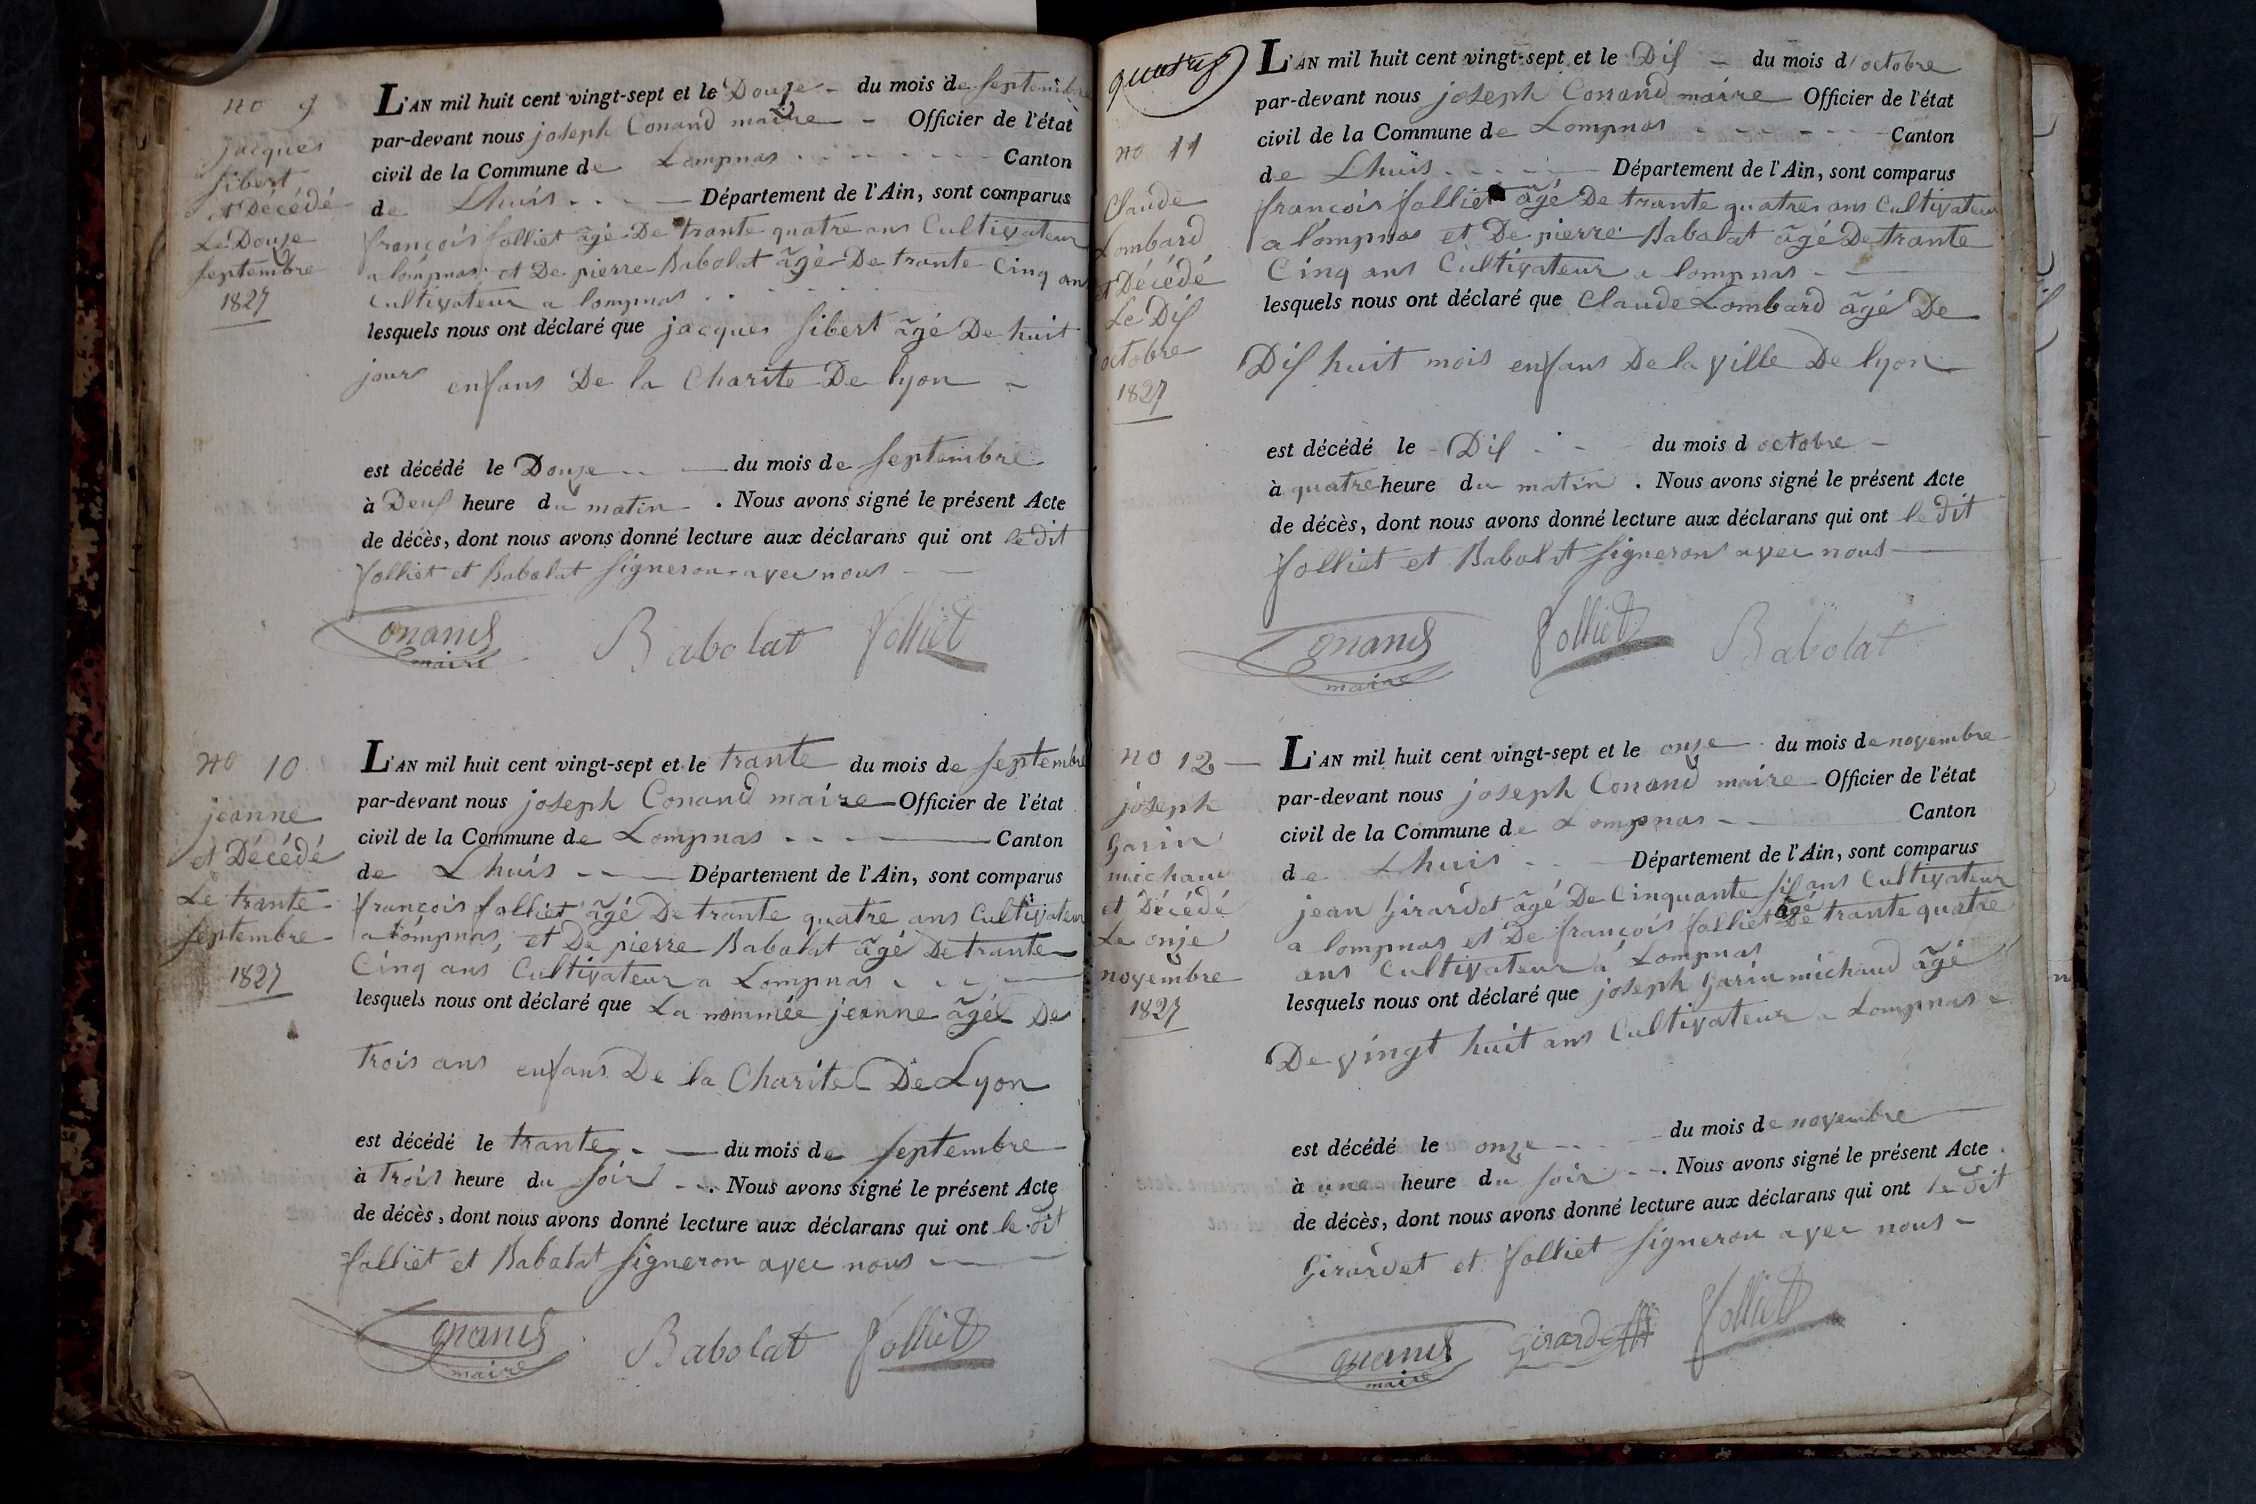 no 9
jacques
sibert
et Décédé
Le Douze
septembre
1827
L'AN mil huit cent vingt-sept et le Douze du mois de septembre
par-devant nous joseph Conand maire Officier de l'état
civil de la Commune de Lompnas Canton
de Lhuis Département de l'Ain, sont comparus
françois folliet âgé De trante quatre ans Cultivateur
a lompnas et De pierre Babolat âgé De trante Cinq ans
Cultivateur a lompnas
lesquels nous ont déclaré que jacques sibert âgé De huit
jours enfans De la Charite De lyon
est décédé le Douze du mois de septembre
à Deus heure du matin. Nous avons signé le présent Acte
de décès, dont nous avons donné lecture aux déclarans qui ont le dit
folliet et Babolat signeron avec nous
Conand Babolat folliet
maire
no 10
jeanne
et Décédé
Le trante
septembre
1827
L'AN mil huit cent vingt-sept et le trante du mois de septembre
par-devant nous joseph Conand maire Officier de l'état
civil de la Commune de Lompnas Canton
de Lhuis Département de l'Ain, sont comparus
françois folliet âgé De trante quatre ans Cultivateur
a lompnas, et De pierre Babolat âgé De trante
Cinq ans Cultivateur a Lompnas
lesquels nous ont déclaré que La nommée jeanne âgée De
Trois ans enfans De la Charite De Lyon
est décédé le trante du mois de septembre
à Trois heure du soir. Nous avons signé le présent Acte
de décès, dont nous avons donné lecture aux déclarans qui ont le dit
folliet et Babolat signeron avec nous
Conand Babolat folliet
maire
quatre
no 11
Claude
Lombard
et Décédé
Le Dis
octobre
1827
L'AN mil huit cent vingt-sept et le Dis du mois d'octobre
par-devant nous joseph Conand maire Officier de l'état
civil de la Commune de Lompnas Canton
de Lhuis Département de l'Ain, sont comparus
françois folliet âgé De trante quatres ans Cultivateur
a lompnas et De pierre Babolat âgé De trante
Cinq ans Cultivateur a lompnas
lesquels nous ont déclaré que Claude Lombard âgé De
Dis huit mois enfans De la ville De lyon
est décédé le Dis du mois d octobre
à quatre heure du matin. Nous avons signé le présent Acte
de décès, dont nous avons donné lecture aux déclarans qui ont le dit
folliet et Babolat signeron avec nous
Conand folliet Babolat
maire
no 12
joseph
Garin
michaud
et Décédé
Le onze
novembre
1827
L'AN mil huit cent vingt-sept et le onze du mois de novembre
par-devant nous joseph Conand maire Officier de l'état
civil de la Commune de Lompnas Canton
de Lhuis Département de l'Ain, sont comparus
jean Girardet âgé De Cinquante sis ans Cultivateur
a lompnas et De françois folliet âgé De trante quatre
ans Cultivateur a Lompnas
lesquels nous ont déclaré que joseph Garin michaud âgé
De vingt huit ans Cultivateur a Lompnas
est décédé le onze du mois de novembre
à une heure du soir. Nous avons signé le présent Acte
de décès, dont nous avons donné lecture aux déclarans qui ont le dit
Girardet et folliet signeron avec nous
Conand Girardet folliet
maire